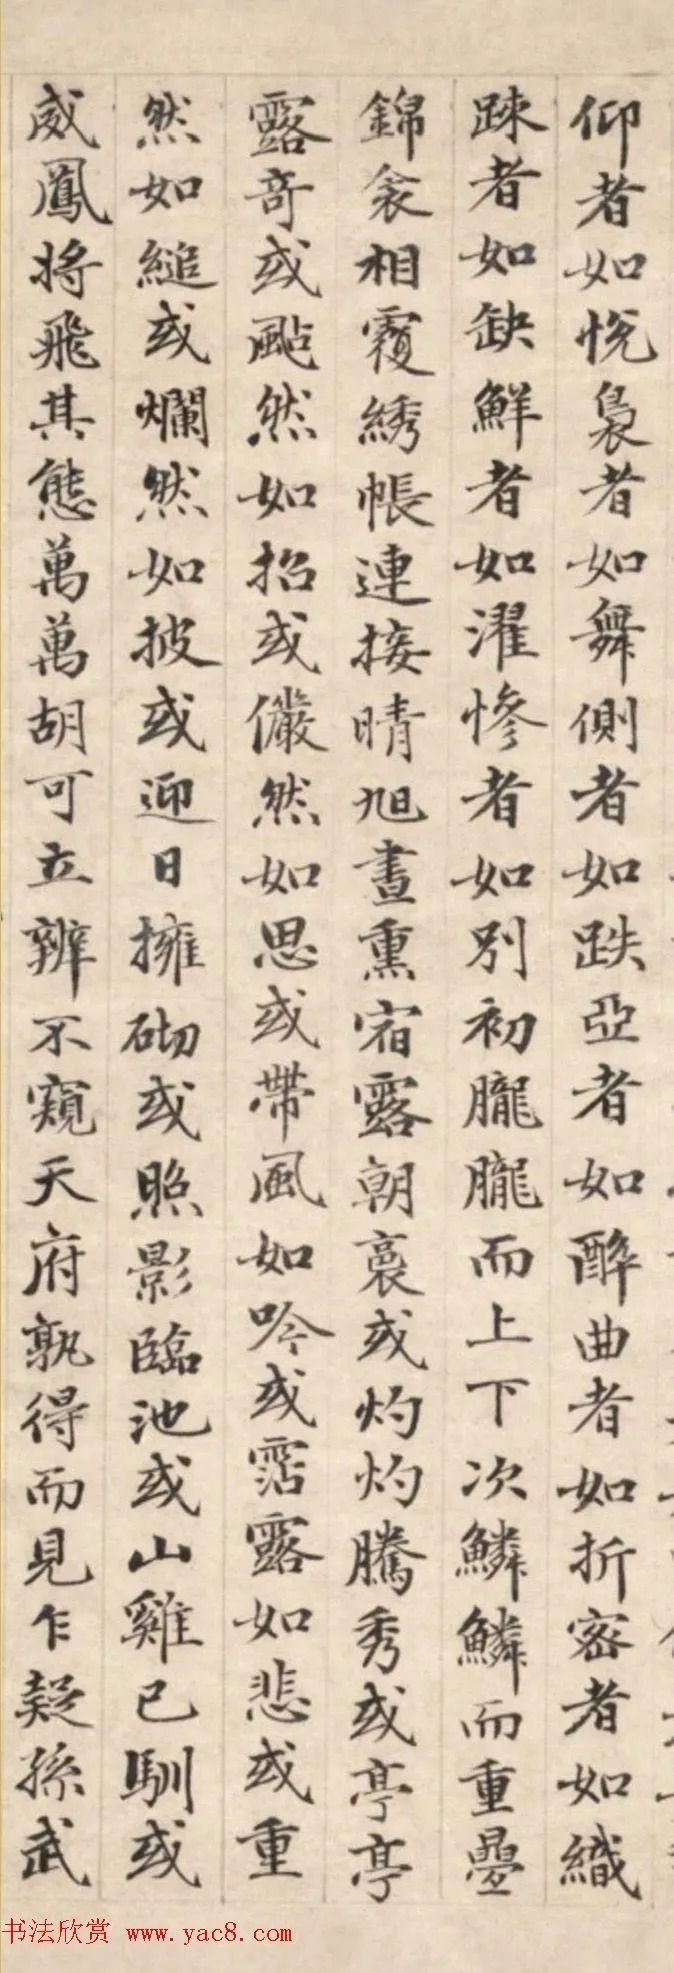 仰者如悅裊者如舞側者如跌亞者如醉曲者如折密者如織
踈者如缺鮮者如濯慘者如別初朧朧而上下次鱗鱗而重疊
錦衾相覆綉帳連接晴旭晝熏宿露朝裛或灼灼騰秀或亭亭
露奇或颭然如招或儼然如思或帶風如吟或霑露如悲或重
然如縋或爛然如披或迎日擁砌或照影臨池或山雞已馴或
威鳳將飛其態萬萬胡可立辨不窺天府孰得而見乍疑孫武
书法欣赏 www.yac8.com